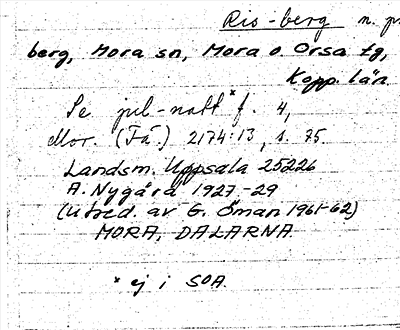 Ris-berg n. pr.
berg, Mora sn, Mora o. Orsa tg,
Kopp. län
Se jul-natt* f. 4,
Mor. (Fä.) 2174:13, s. 75.
Landsm. Uppsala 25226
A. Nygård 1927-29
(utred. av G. Öman 1961-62)
MORA, DALARNA.
* ej i SOA.